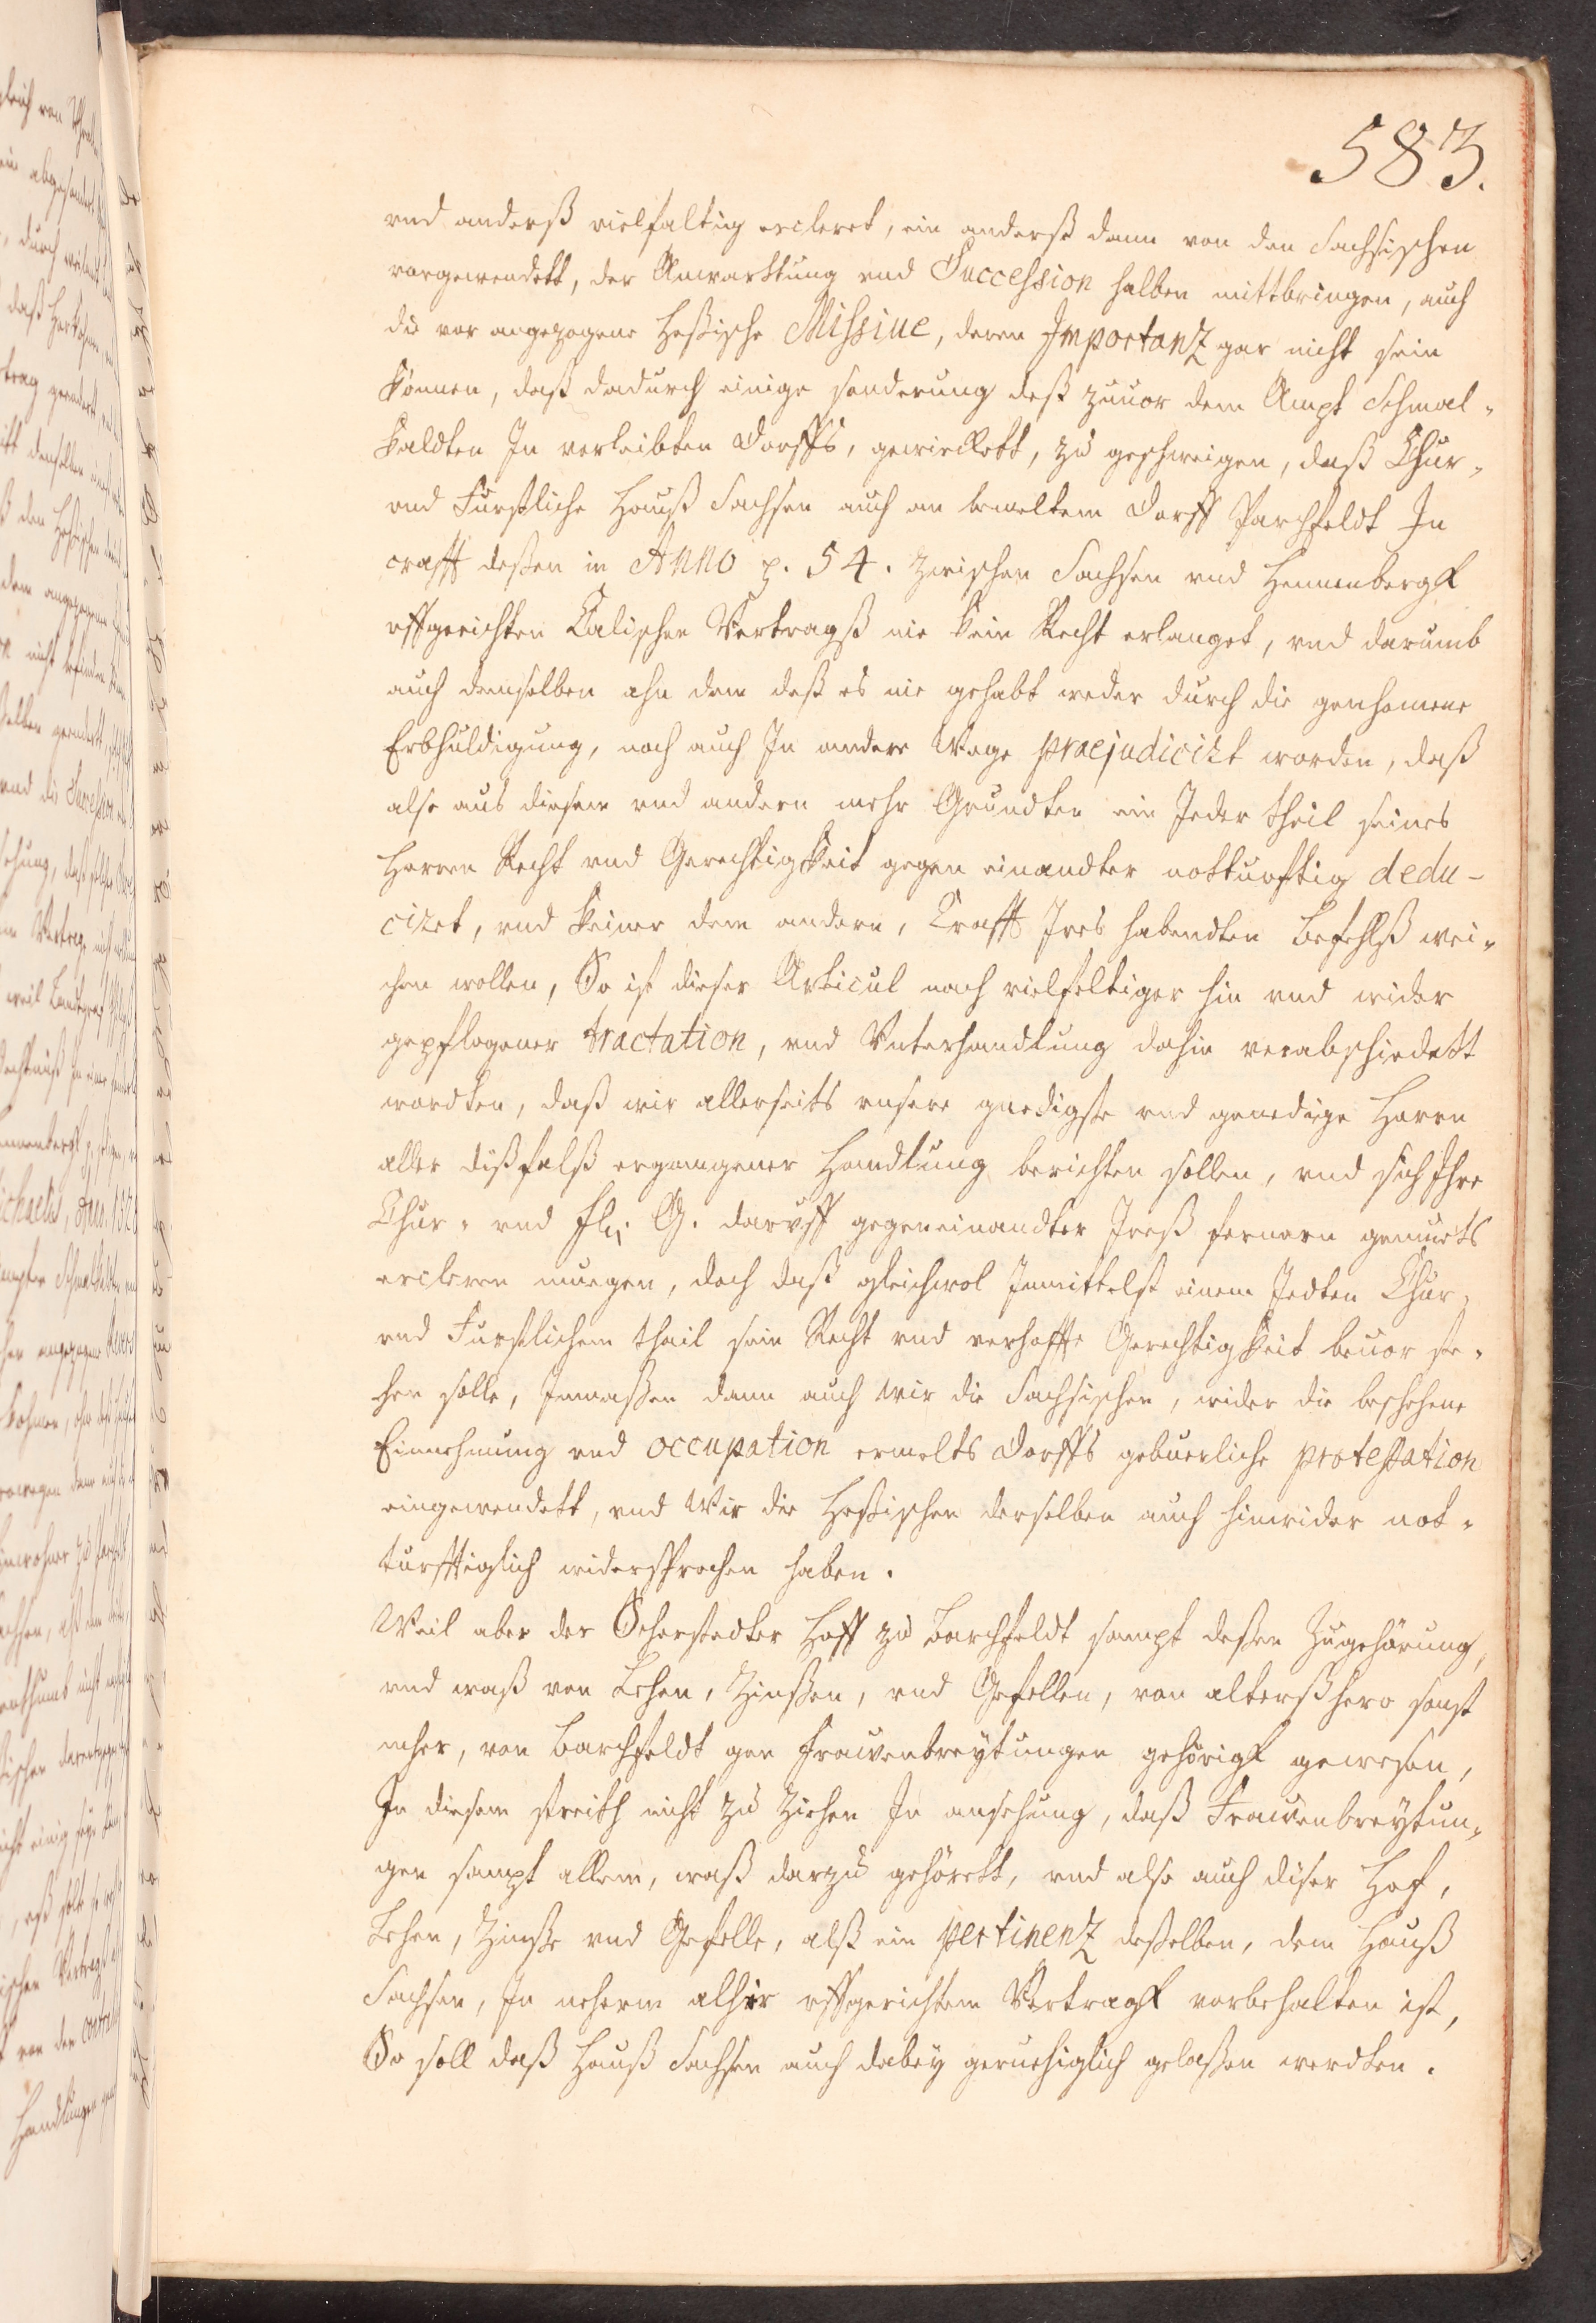 583.
vnd anderß vielfaltig ercleret, ein anderß dann von den Sachsischen
vorgewendett, der Anwarttung vnd Succession halben mittbringen, auch
die vor angezogene Heßische Missiue, deren Importanz gar nicht sein
können, daß dadurch einige sonderung deß zuuor dem Ampt Schmal-
kaldten In verleibten Dorffs, gewircklett, zu geschweigen, daß Chur-
vnd Furstliche Hauß Sachsen auch an bemeltem Dorff Parchfeldt In
crafft deßen in Anno p. 54. zwischen Sachsen vnd Hennenbergk
vffgerichten Calischen Vertragß nie kein Recht erlanget, vnd darumb
auch demselben ahn dem deß es nie gehabt weder durch die genhomene
Erbhuldigung, noch auch In andere Wege praejudicirt worden, daß
also aus diesem vnd andern mehr Grundten ein Jeder theil seines
Herren Recht vnd Gerechtigkeit gegen einandter notturftig dedu-
ciret, vnd keiner dem andern, Crafft Ires habendten Befehlß wei-
chen wollen, So ist dieser Articul nach vielfeltiger hin vnd wider
gepflogener tractation, vnd Vnterhandlung dahin verabschiedett
wordten, daß wir allerseits vnsere gnedigste vnd genedige Herrn
aller dißfalß ergangener Handlung berichten sollen, vnd sich Ihre
Chur- vnd fl. G. daruff gegeneinandter Ireß fernern gemuets
ercleren muegen, doch daß gleichwol Inmittelst einem Jedten Chur-
vnd Furstlichem theil sein Recht vnd verhoffte Gerechtigkeit beuor ste-
hen solle, Inmaßen dann auch Wir die Sachsischen, wider die beschehene
Einnehmung vnd occupation ermelts Dorffs gebuerliche protestation
eingewendett, vnd Wir die Heßischen derselben auch hinwider not-
turfftiglich widersprochen haben.
Weil aber der Scherstedter Hoff zu Barchfeldt sampt deßen Zugehörung,
vnd waß von Lehen, Zinßen, vnd Gefellen, von alterßhero sonst
mher, von Barchfeldt gen Frauenbreytungen gehörigk gewesen,
In diesem streith nicht zu ziehen In ansehung, daß Frauenbreytun-
gen sampt allem, waß darzu gehörett, vnd also auch diser Hof,
Lehen, Zinße vnd Gefelle, alß ein pertinenz deßelben, dem Hauß
Sachsen, In neherm alhir vffgerichtem Vertragk vorbehalten ist,
So soll daß Hauß Sachsen auch dabey geruehiglich gelaßen werdten.